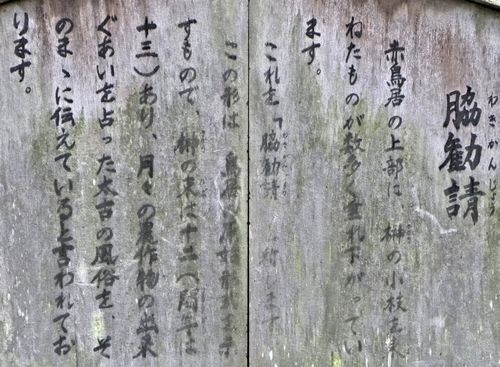 わきかん
脇勧請
赤鳥居の上部に 榊の小枝を束
ねたものが数多く垂れ下がってい
ます。
これを「脇勧請 称します
この形は 鳥居の原始形式を
すもので、榊の束は十二へ閏年は
十三）あり、月々の農作物の出来
ぐあいを占った太古の風俗を、そ
のまゝに伝えていると言われてお
ります。